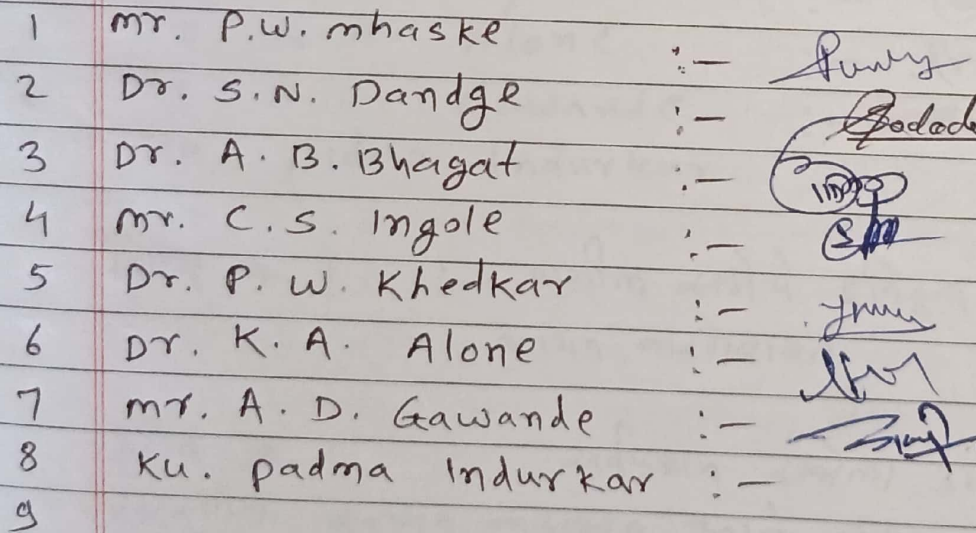 1 Mr. P.W. Mhaske :-
2 Dr. S.N. Dandge :-
3 Dr. A. B. Bhagat :-
4 Mr. C.S. Ingole :-
5 Dr. P. W. Khedkar :-
6 Dr. K. A. Alone :-
7 Mr. A. D. Gawande :-
8 Ku. Padma Indurkar :-
9